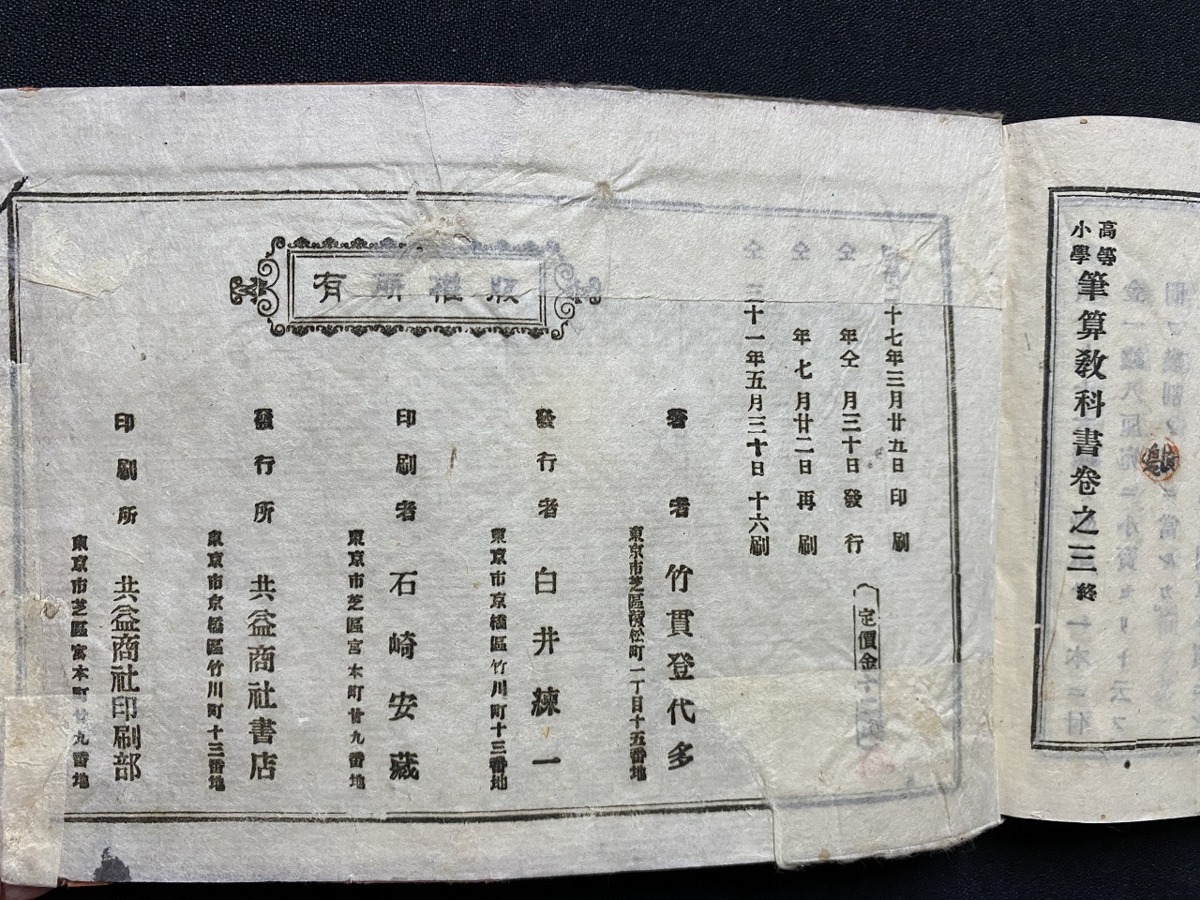 高等小學 筆算教科書卷之三 終
十七年三月廿五日印刷
仝年仝月三十日發行
仝年七月廿二日再刷
仝三十一年五月三十日十六刷
定價金十二
版權所有
著者
東京市芝區
松町一丁目十五番地
竹貫登代多
發行者
東京市京橋區竹川町十三番地
白井練一
印刷者
東京市芝區宮本町廿九番地
石崎安藏
發行所
東京市京橋區竹川町十三番地
共益商社書店
印刷所
東京市芝區宮本町廿九番地
共益商社印刷部